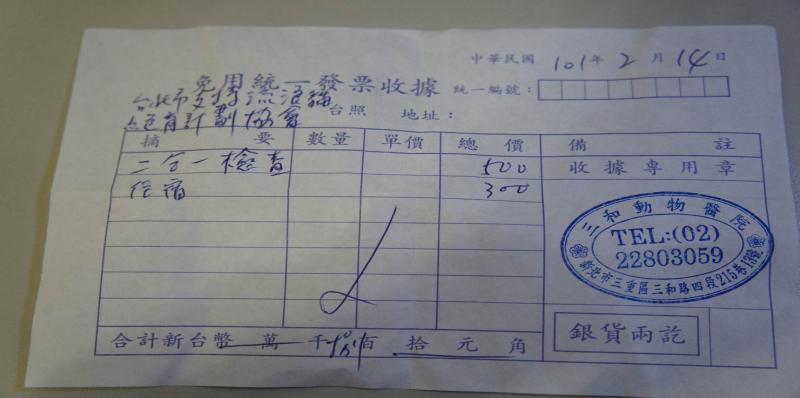 中華民國 101年 2 月 14 日
免用統一發票收據 統一編號：
台北市支持流浪貓
絕育計劃協會 台照 地址：
摘要 數量 單價 總價 備註
二合一檢查 500 收據專用章
住宿 300
三和動物醫院
TEL:(02)
22803059
新北市三重區三和路四段215巷13號
合計新台幣 萬 千 百 拾 元 角
銀貨兩訖